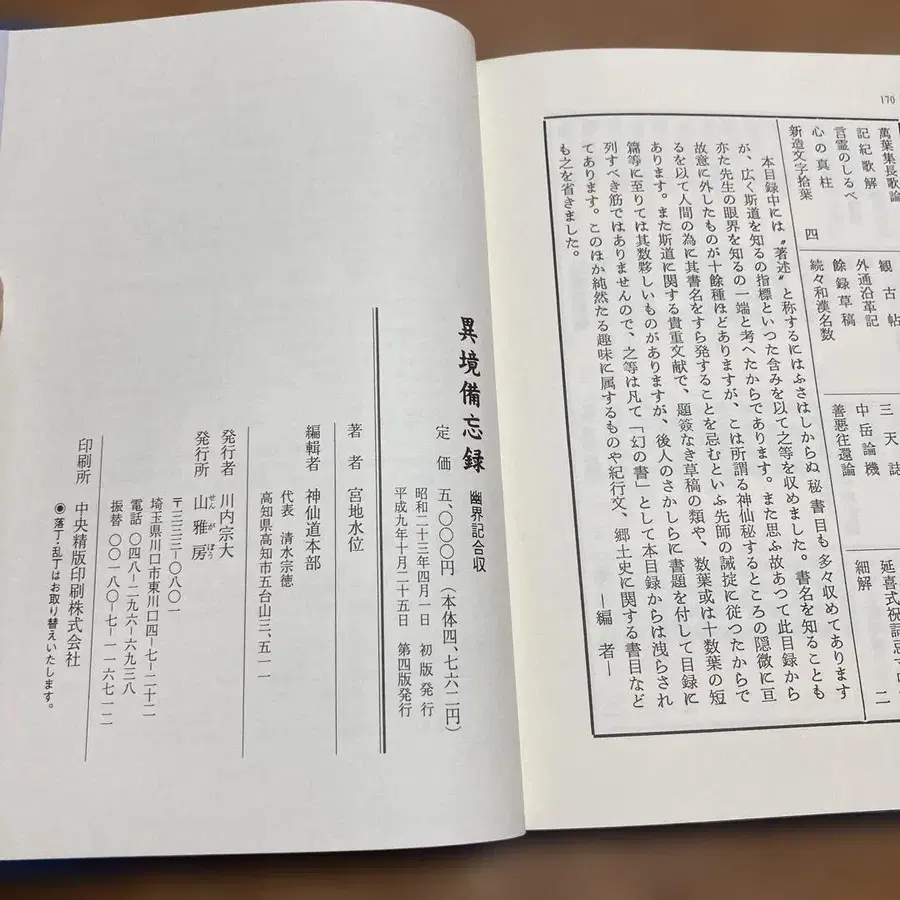 170
萬葉集長歌論
記紀歌解
言霊のしるべ
心の真柱
新造文字拾葉 四
観古帖
外通沿革記
餘録草稿
続々和漢名数
三天誌
中岳論機
善悪往還論
細解 二
本目録中には〝著述〟と称するにはふさはしからぬ秘書目も多々収めてあります
が、広く斯道を知るの指標といつた含みを以て之等を収めました。書名を知ることも
亦た先生の眼界を知るの一端と考へたからであります。また思ふ故あつて此目録から
故意に外したものが十餘種ほどありますが、こは所謂る神仙秘するところの隠微に亘
るを以て人間の為に其書名をすら発することを忌むといふ先師の誡掟に従つたからで
あります。また斯道に関する貴重文献で、題簽なき草稿の類や、数葉或は十数葉の短
篇等に至りては其数夥しいものがありますが、後人のさかしらに書題を付して目録に
列すべき筋ではありませんので、之等は凡て「幻の書」として本目録からは洩らされ
てあります。このほか純然たる趣味に属するものや紀行文、郷土史に関する書目など
も之を省きました。
―編者―
異境備忘録 幽界記合収
定価 五、〇〇〇円(本体四、七六二円)
昭和二十三年四月一日 初版発行
平成九年十月二十五日 第四版発行
著者 宮地水位
編輯者 神仙道本部
代表 清水宗徳
高知県高知市五台山三、五一一
発行者 川内宗大
発行所 山雅房
せんがぼう
〒三三三-〇八〇一
埼玉県川口市東川口四-七-二十二
電話 〇四八-二九六-六九三八
振替 〇〇一八〇-七-一一六七一二
印刷所 中央精版印刷株式会社
◉落丁・乱丁はお取り替えいたします。